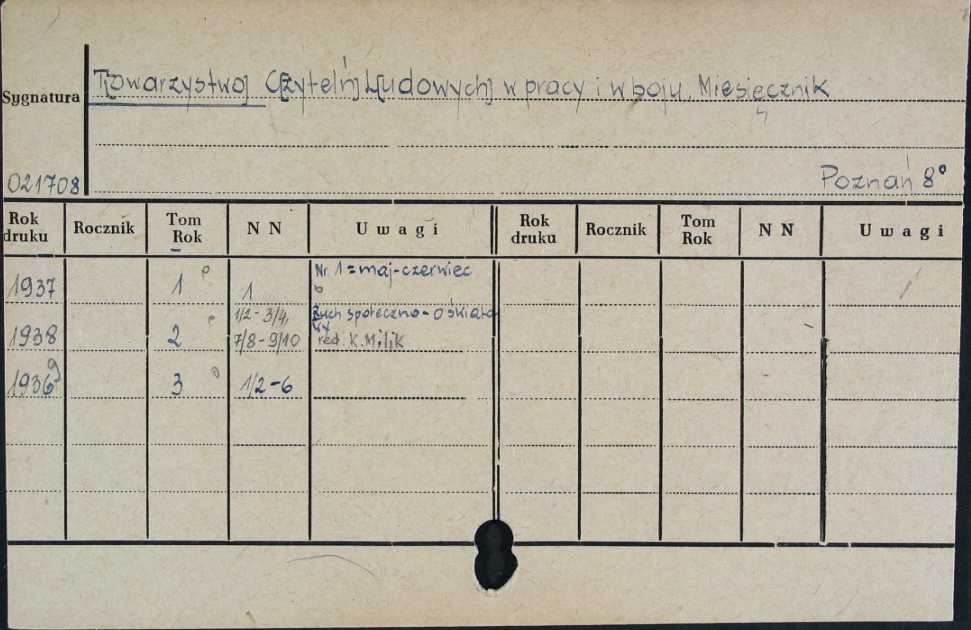 T[owarzystwo] Cz[yteln]i L[udowych] w pracy i w boju. Miesięcznik
Sygnatura
021708
Poznań 8°
Rok druku Rocznik Tom Rok N N Uwagi Rok druku Rocznik Tom Rok N N Uwagi
1937 1 1 Nr 1 = maj-czerwiec
1938 2 1/2-3/4, 7/8-9/10 społeczno-oświato red. K. Milik
1936 9 3 1/2-6